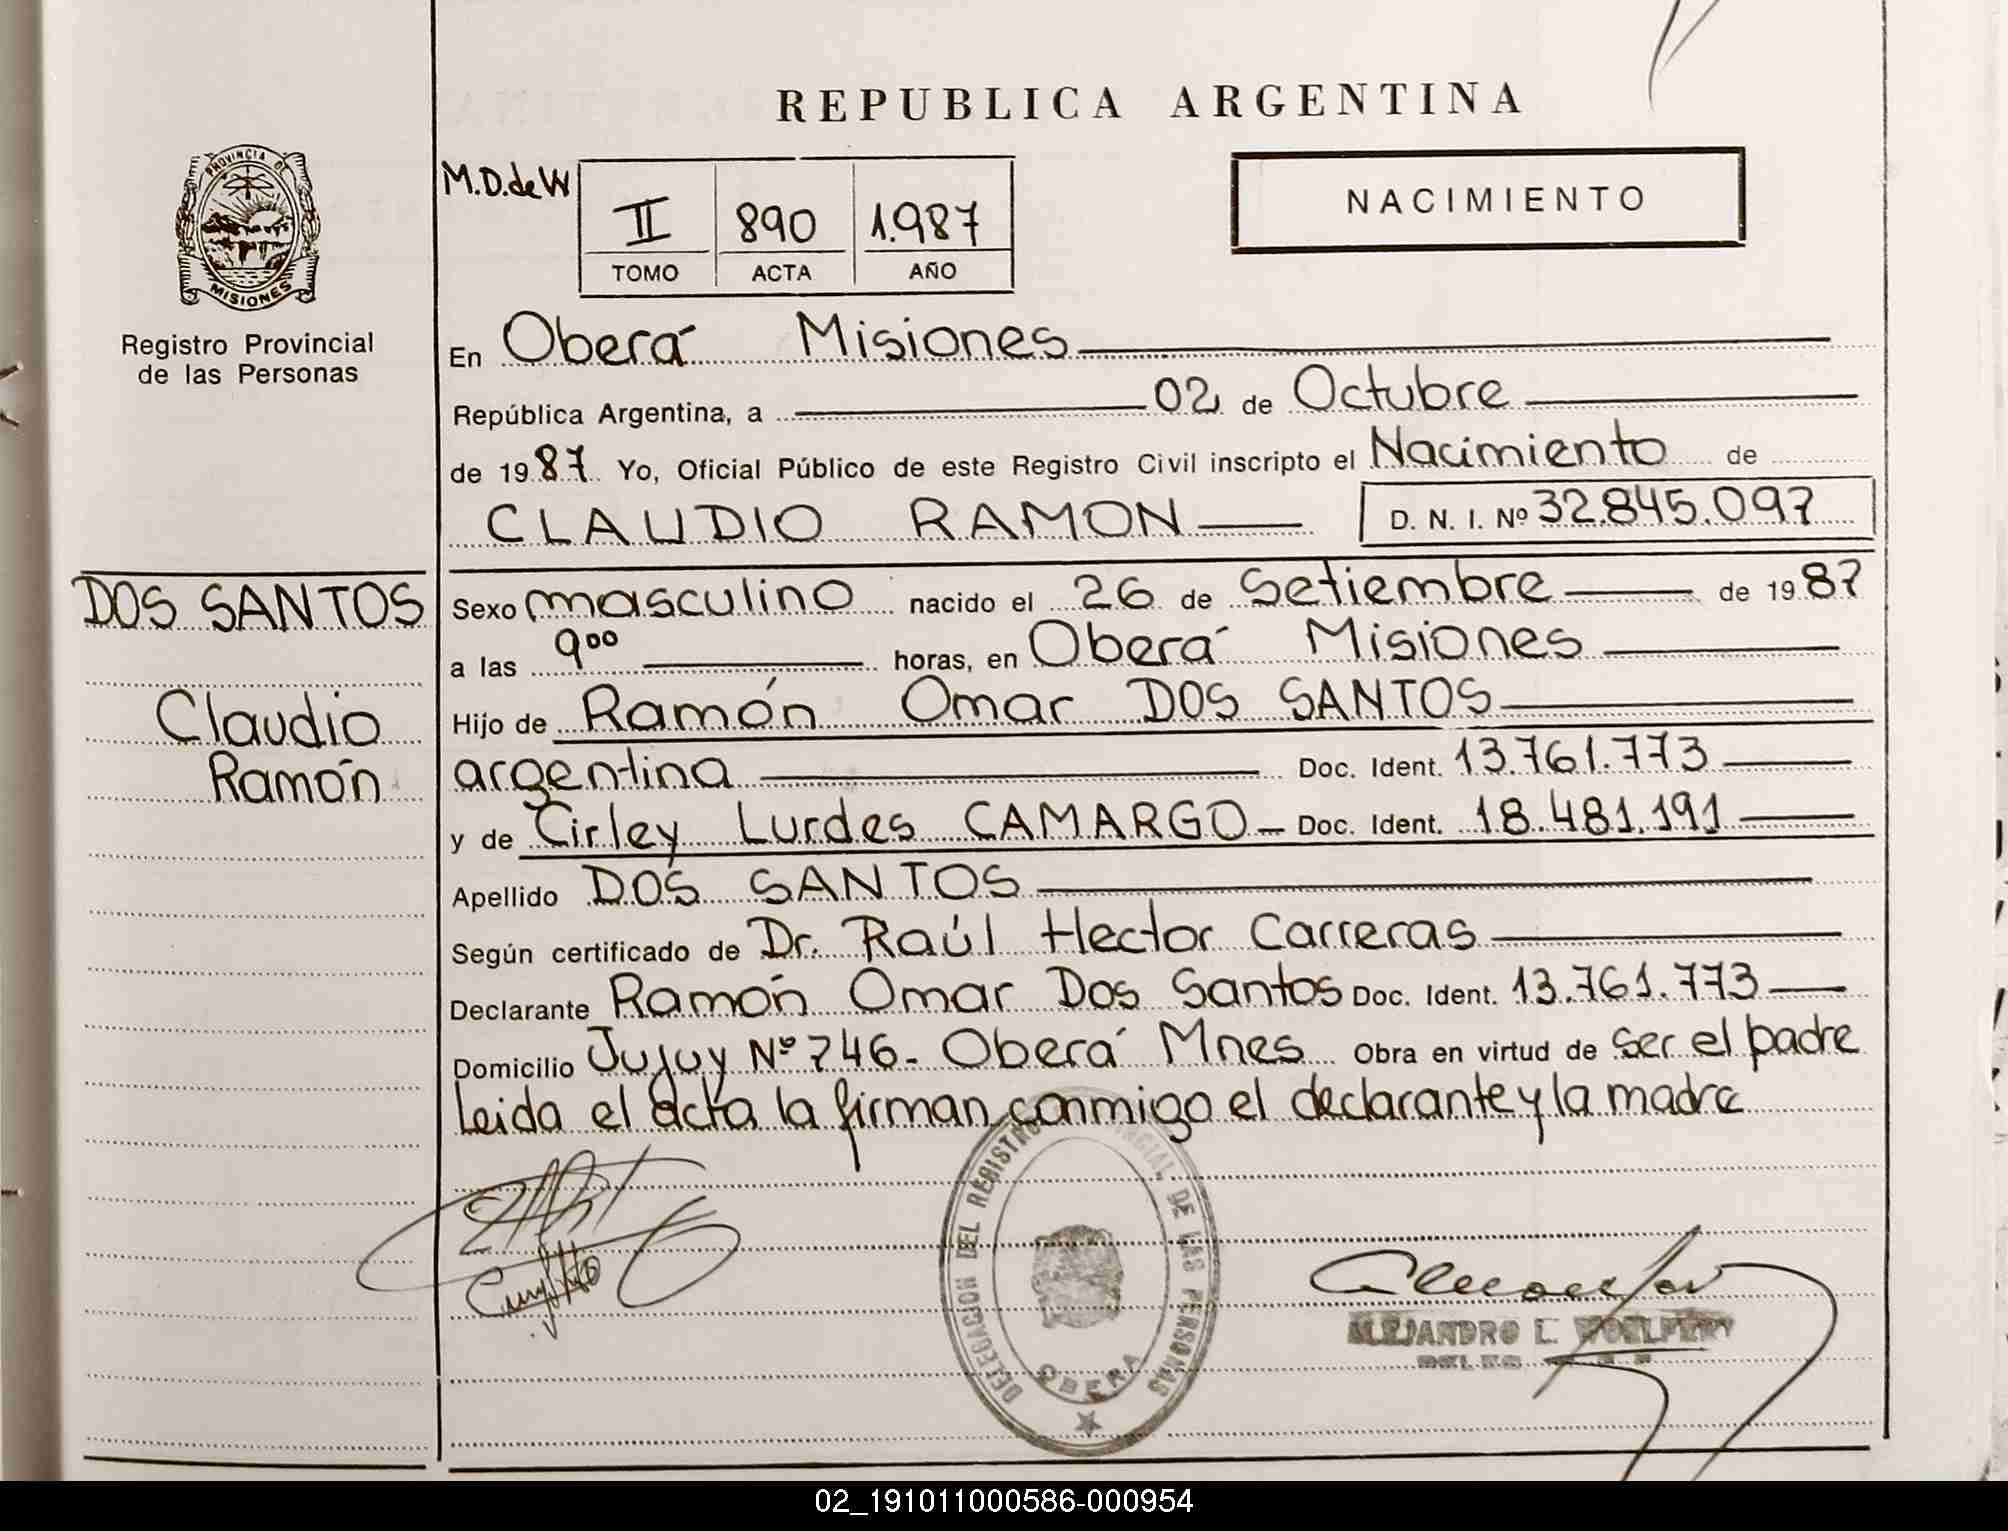 REPUBLICA ARGENTINA
PROVINCIA DE
MISIONES
Registro Provincial
de las Personas
M.D.de W
II 890 1.987
TOMO ACTA AÑO
NACIMIENTO
En Oberá Misiones
República Argentina, a 02 de Octubre
de 1987 Yo, Oficial Público de este Registro Civil inscripto el Nacimiento de
CLAUDIO RAMON D. N. I. Nº 32.845.097
DOS SANTOS
Claudio
Ramón
Sexo masculino nacido el 26 de Setiembre de 1987
a las 9⁰⁰ horas, en Oberá Misiones
Hijo de Ramón Omar DOS SANTOS
argentina Doc. Ident. 13.761.773
y de Cirley Lurdes CAMARGO Doc. Ident. 18.481.191
Apellido DOS SANTOS
Según certificado de Dr. Raúl Hector Carreras
Declarante Ramón Omar Dos Santos Doc. Ident. 13.761.773
Domicilio Jujuy Nº 746- Oberá Mnes Obra en virtud de ser el padre
Leida el acta la firman conmigo el declarante y la madre
DELEGACION DEL REGISTRO PROVINCIAL DE LAS PERSONAS
OBERA
ALEJANDRO L.
02_191011000586-000954